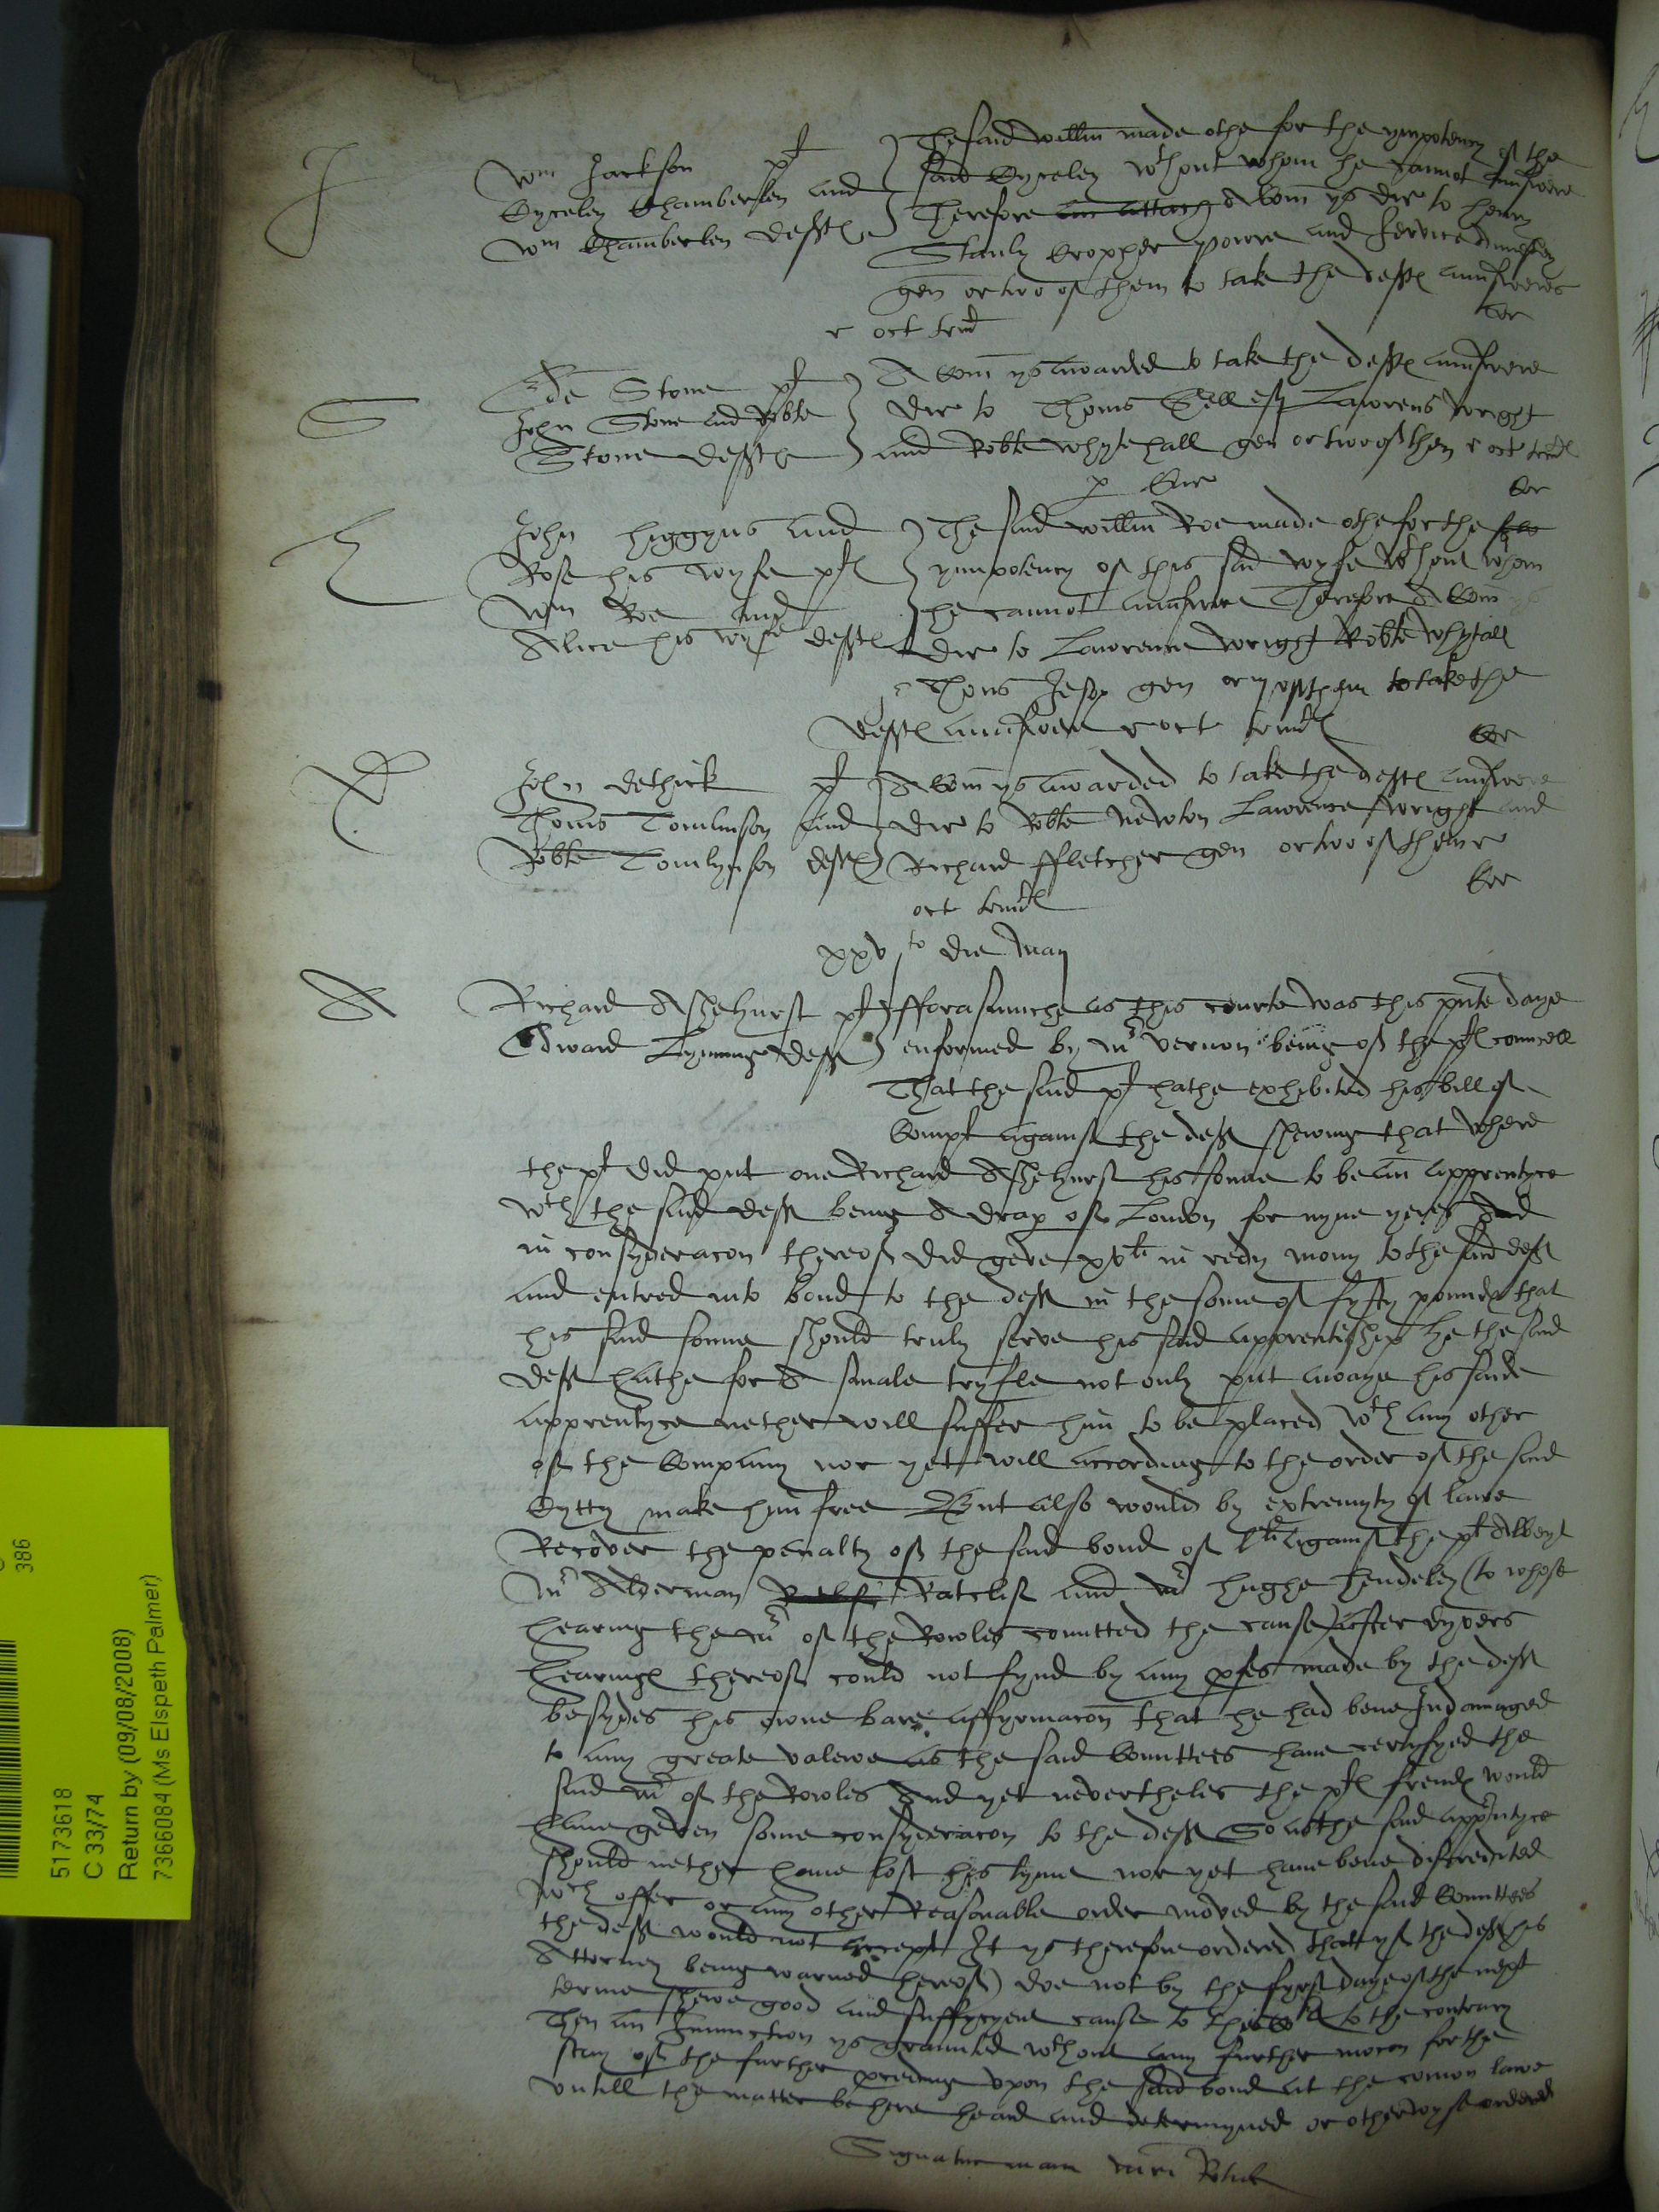 J
Wm Jackson pt
Cyceley Chamberlen and
Wm Chamberlen defftes
The said Willm made othe for the ympotency of the
said Cyceley wthout whom he cannot aunswere
Therefore an attach A Com ys dir to henry
Stanly Cropper and
gen or two of them to take the defftes aunsweres
r oct trin
S
Stone pt
John Stone and Robte
Stone defftes
A Com ys awarded to take the defftes aunswere
dir to Thoms Gell esq Lawrens wright
and Robte whytehall gen or two of them r oct trin
p Cur
H
John higgyns and
Rose his wyfe ptes
Wm Roe and
Alice his wyfe defftes
The said willm Roe made othe for the
ympotency of this said wyfe wthout whom
he cannot aunswere Therefore A Com ys
dir to Lawrence wright Robte whytall
Thoms Jesop gen or ij of them to take the
defftes aunswere r oct trin
D
John dethick pt
Thoms Tomlinson and
Robte Tomlynson defftes
A Com ys awarded to take the defftes aunswere
dir to Robte Newton Lawrence wright and
Richard ffletcher gen or two of them r
oct trin
xxvto die Maij
A
Richard Ashehurst pt
Edward deff
fforasmuche as this courte was this pnte daye
enformed by Mr Vernon being of the ptes councell
That the said pt hathe exhibited his bill of
Compt against the deff shewing that where
the pt did put one Richard Ashehurst his sonne to be an apprentyce
wth the said deff being A drap of London for nyne yeres And
in consyderacon thereof did geve xvli in redy mony to the said deff
and entred into bond to the deff in the some of fyfty poundes that
his said sonne should truly serve his said apprenteship he the said
deff hathe for A smale tryfle not only put awaye his saide
apprentyce nether will suffer him to be placed wth any other
of the Company nor yet will according to the order of the said
Cytty make him free But also would by extremyty of lawe
Recover the penalty of the said bond of lli against the pt Albeyt
Mr Alderman Ratclif and Mr hughe hendeley (to whose
hearing the Mr of the Rowles comitted the cause) after dyvers
hearinges thereof could not fynd by any pfes made by the deff
besydes his owne bare affyrmacon that he had bene Indamaged
to any greate valewe as the said Comittees have certyfyed the
said Mr of the Rowles And yet nevertheles the ptes frendes would
have geven some consyderacon to the deff So as the said apprntyce
should nether have lost his tyme nor yet have bene discredited
wch offer or any other Reasonable order moved by the said Comittees
the deff would not accept It ys therefore ordered that yf the deff (his
Attorney being warned hereof) doe not by the fyrst daye of the next
terme shewe good and suffycyent cause to to the contrary
Then an Iniunction ys graunted wthout any further mocon for the
stay of the further pceding upon the said bond at the comon lawe
untill the matter be here heard and determyned or otherwyse ordered
Signatur manu
386
5173618
C 33/74
Return by (09/08/2008)
7366084 (Ms Elspeth Palmer)